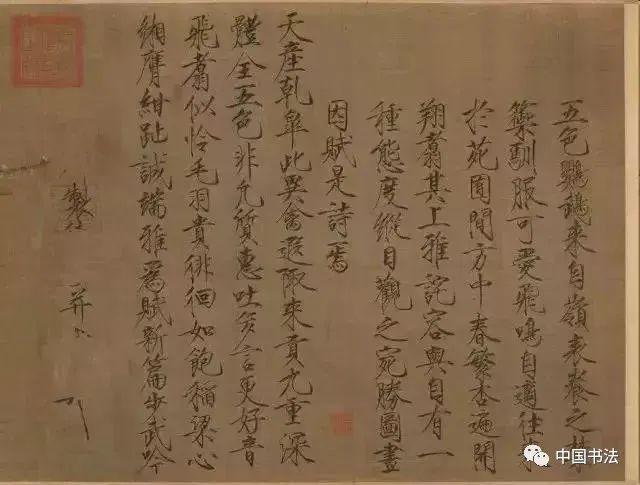 五色鸚鵡來自嶺表養之禁
籞馴服可愛飛鳴自適往來
於苑囿間方中春繁杏遍開
翔翥其上雅詫容與自有一
種態度縱目觀之宛勝圖畫
因賦是詩焉
天產乾皋此異禽遐陬來貢九重深
體全五色非凡質惠吐多言更好音
飛翥似憐毛羽貴徘徊如飽稻粱心
緗膺紺趾誠端雅為賦新篇步武吟
製
并
中国书法